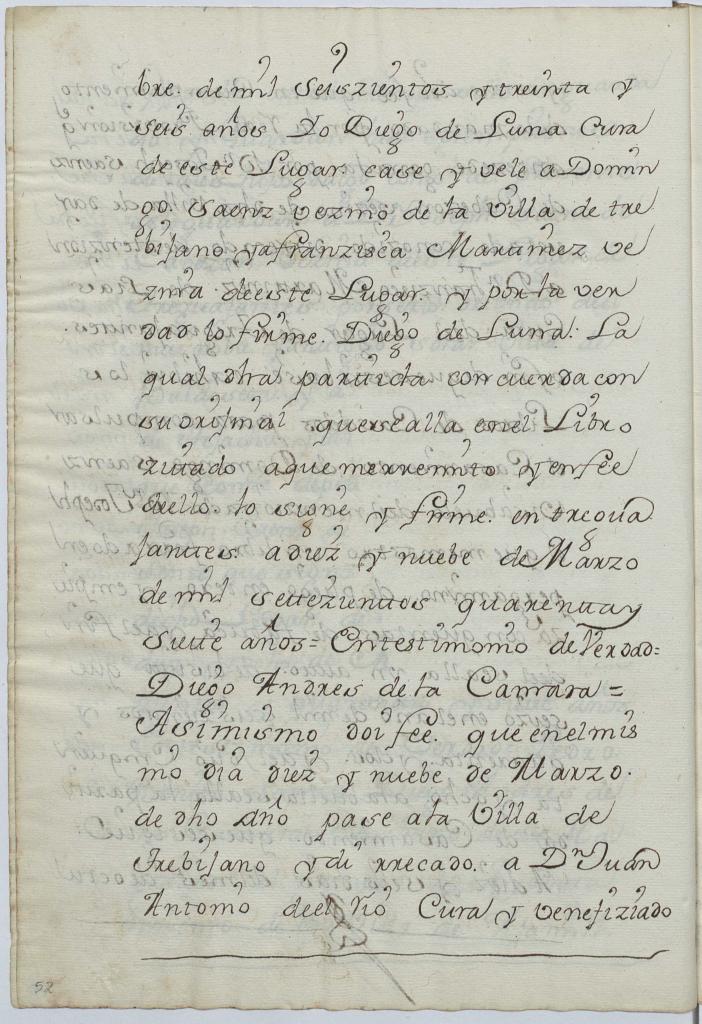 bre. de mil Seiszientos y treinta y
seis años Yo Diego de Luna. Cura
de este Lugar. case y vele a Domin
go. Saenz vezino de la Villa de tre
bijano y a franzisca Martinez ve
zina de este Lugar. y por la ver
dad lo firme. Diego de Luna: La
qual dha partida concuerda con
su orijinal. que se alla en el Libro
zitado a que me rremito y en fee
de ello. lo signe y firme. en treguа
jantes. a diez y nuebe de Marzo
de mil settezienttos quarenta y
siette años = En testimonio de Verdad =
Diego Andres de la Camara =
Asimismo doi fee. que en el mis
mo dia diez y nuebe de Marzo.
de dho año pase a la Villa de
Trebijano y di rrecado. a Dn Juan
Antonio de el rio Cura y venefiziado
52